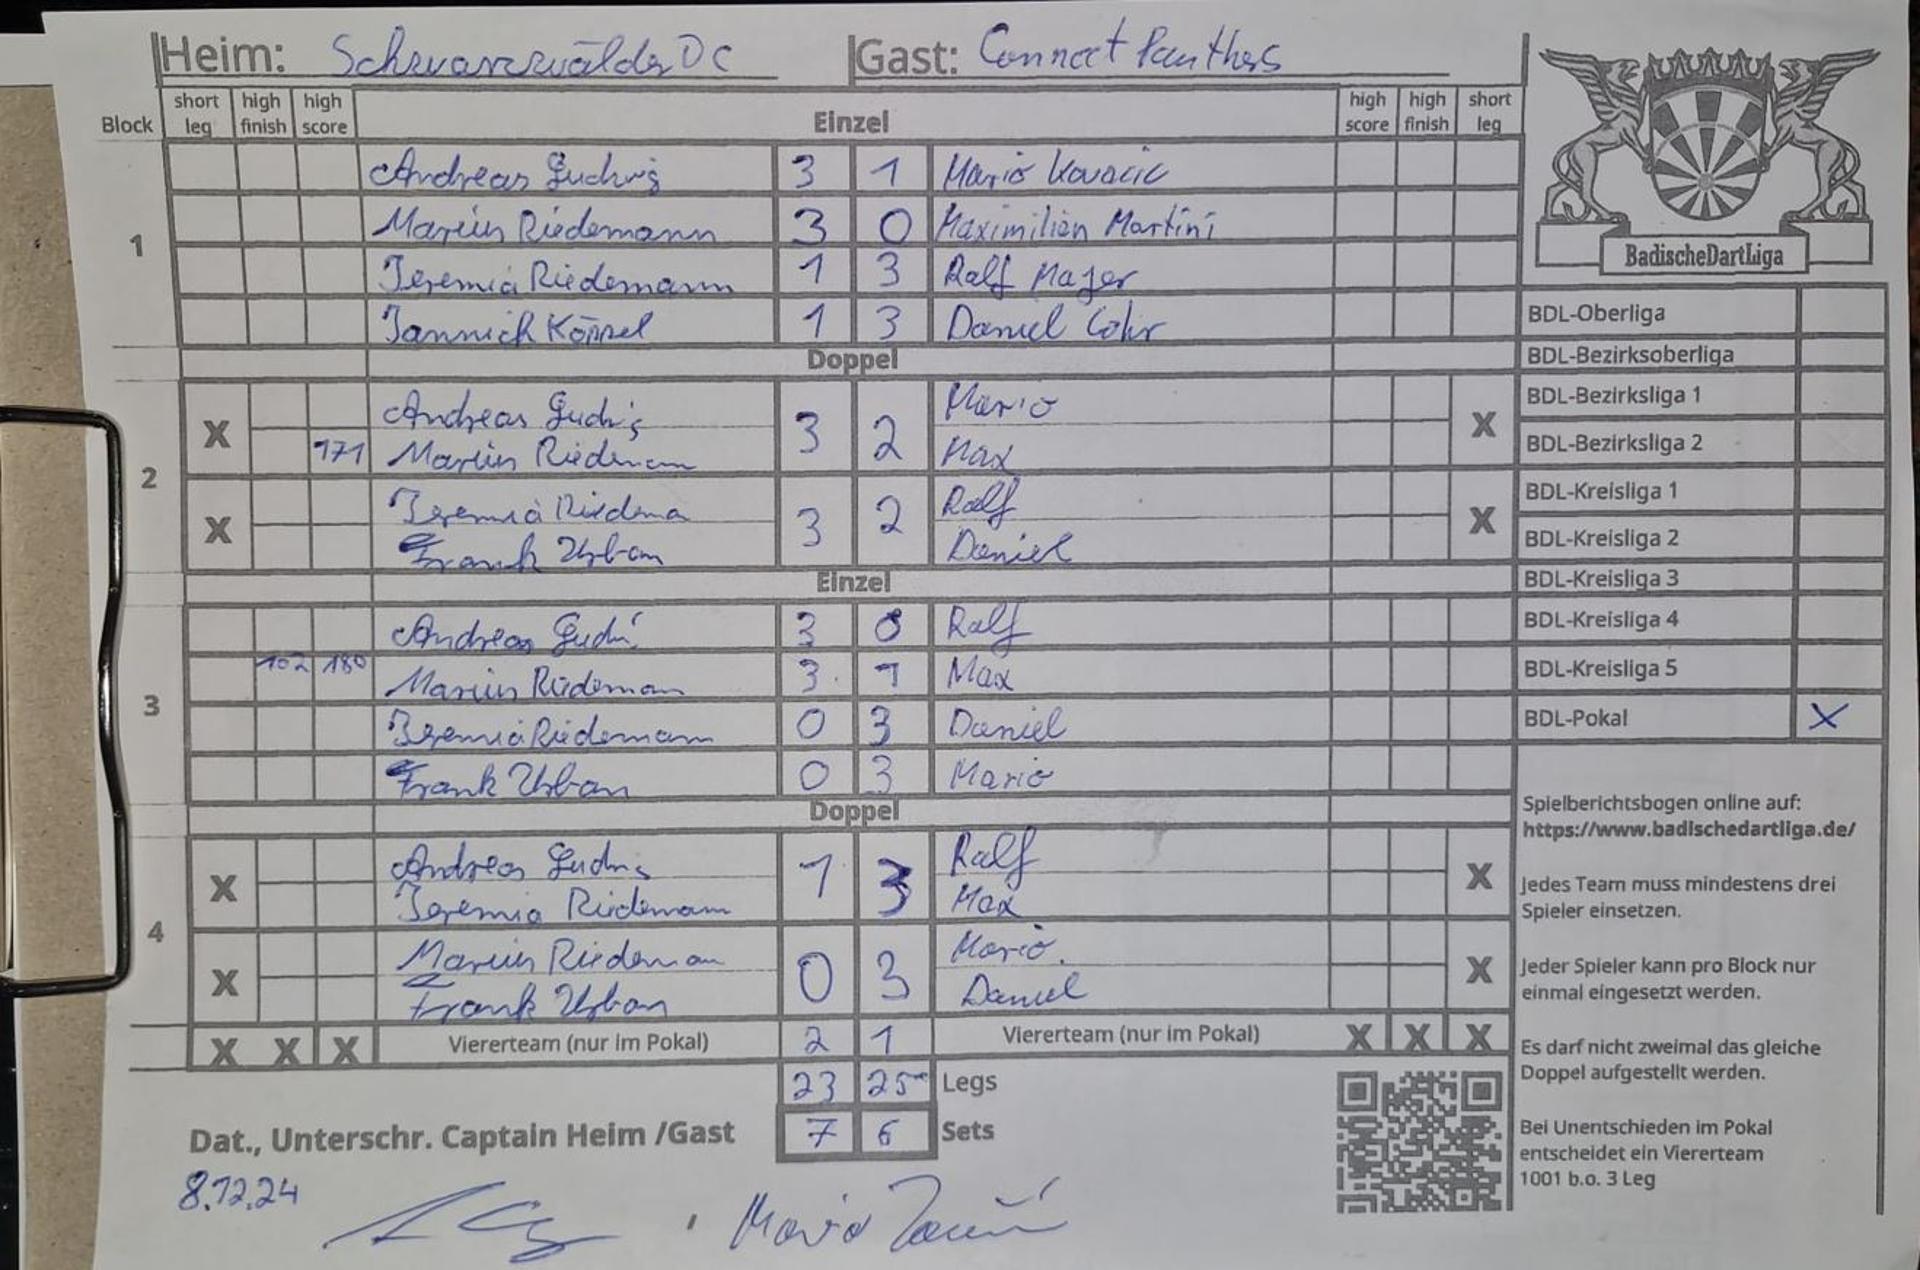 Heim: Schwarzwälder DC Gast: Connect Panthers
Block short leg high finish high score Einzel high score high finish short leg
1
Andreas Gudwis 3 1 Mario Kovacic
Marius Riedemann 3 0 Maximilian Martini
Jeremia Riedemann 1 3 Ralf Majer
Jannick Köppel 1 3 Daniel Cohr
Doppel
2
X Andreas 3 2 Mario X
171 Marius Riedemann Max
X Jeremia Riedema 3 2 Ralf X
Frank Urban Daniel
Einzel
3
Andreas 3 0 Ralf
102 180 Marius Riedeman 3 1 Max
Jeremia Riedemann 0 3 Daniel
Frank Urban 0 3 Mario
Doppel
4
X Andreas 1 3 Ralf X
Jeremia Riedemann Max
X Marius Riedeman 0 3 Mario. X
Frank Urban Daniel
X X X Viererteam (nur im Pokal) 2 1 Viererteam (nur im Pokal) X X X
23 25 Legs
Dat., Unterschr. Captain Heim /Gast 7 6 Sets
8.12.24
Mario
BadischeDartLiga
BDL-Oberliga
BDL-Bezirksoberliga
BDL-Bezirksliga 1
BDL-Bezirksliga 2
BDL-Kreisliga 1
BDL-Kreisliga 2
BDL-Kreisliga 3
BDL-Kreisliga 4
BDL-Kreisliga 5
BDL-Pokal X
Spielberichtsbogen online auf:
https://www.badischedartliga.de/
Jedes Team muss mindestens drei
Spieler einsetzen.
Jeder Spieler kann pro Block nur
einmal eingesetzt werden.
Es darf nicht zweimal das gleiche
Doppel aufgestellt werden.
Bei Unentschieden im Pokal
entscheidet ein Viererteam
1001 b.o. 3 Leg